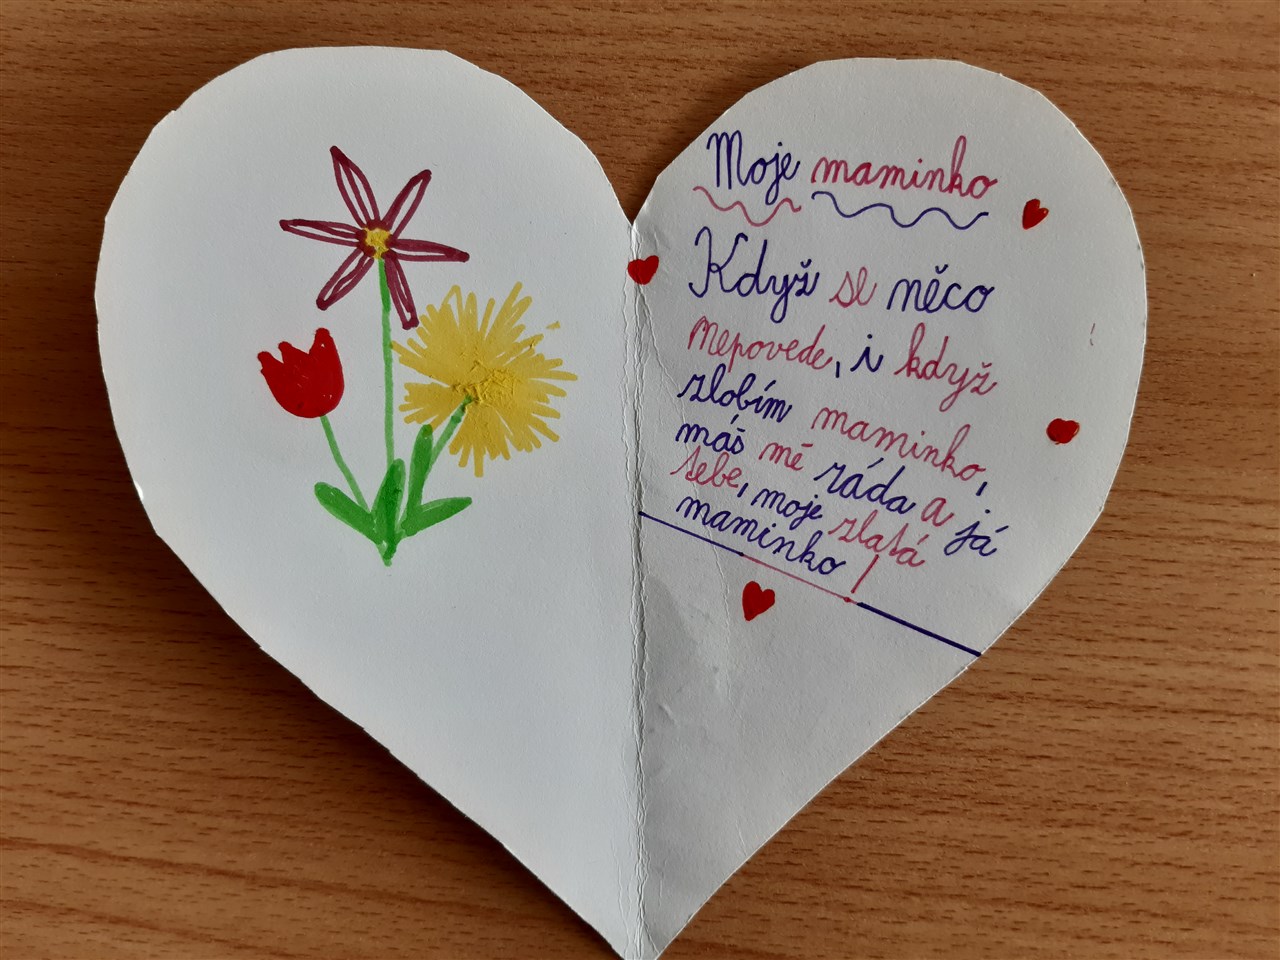 Moje maminko
Když se něco
nepovede, i když
zlobím maminko,
máš mě ráda a já
tebe, moje zlatá
maminko!